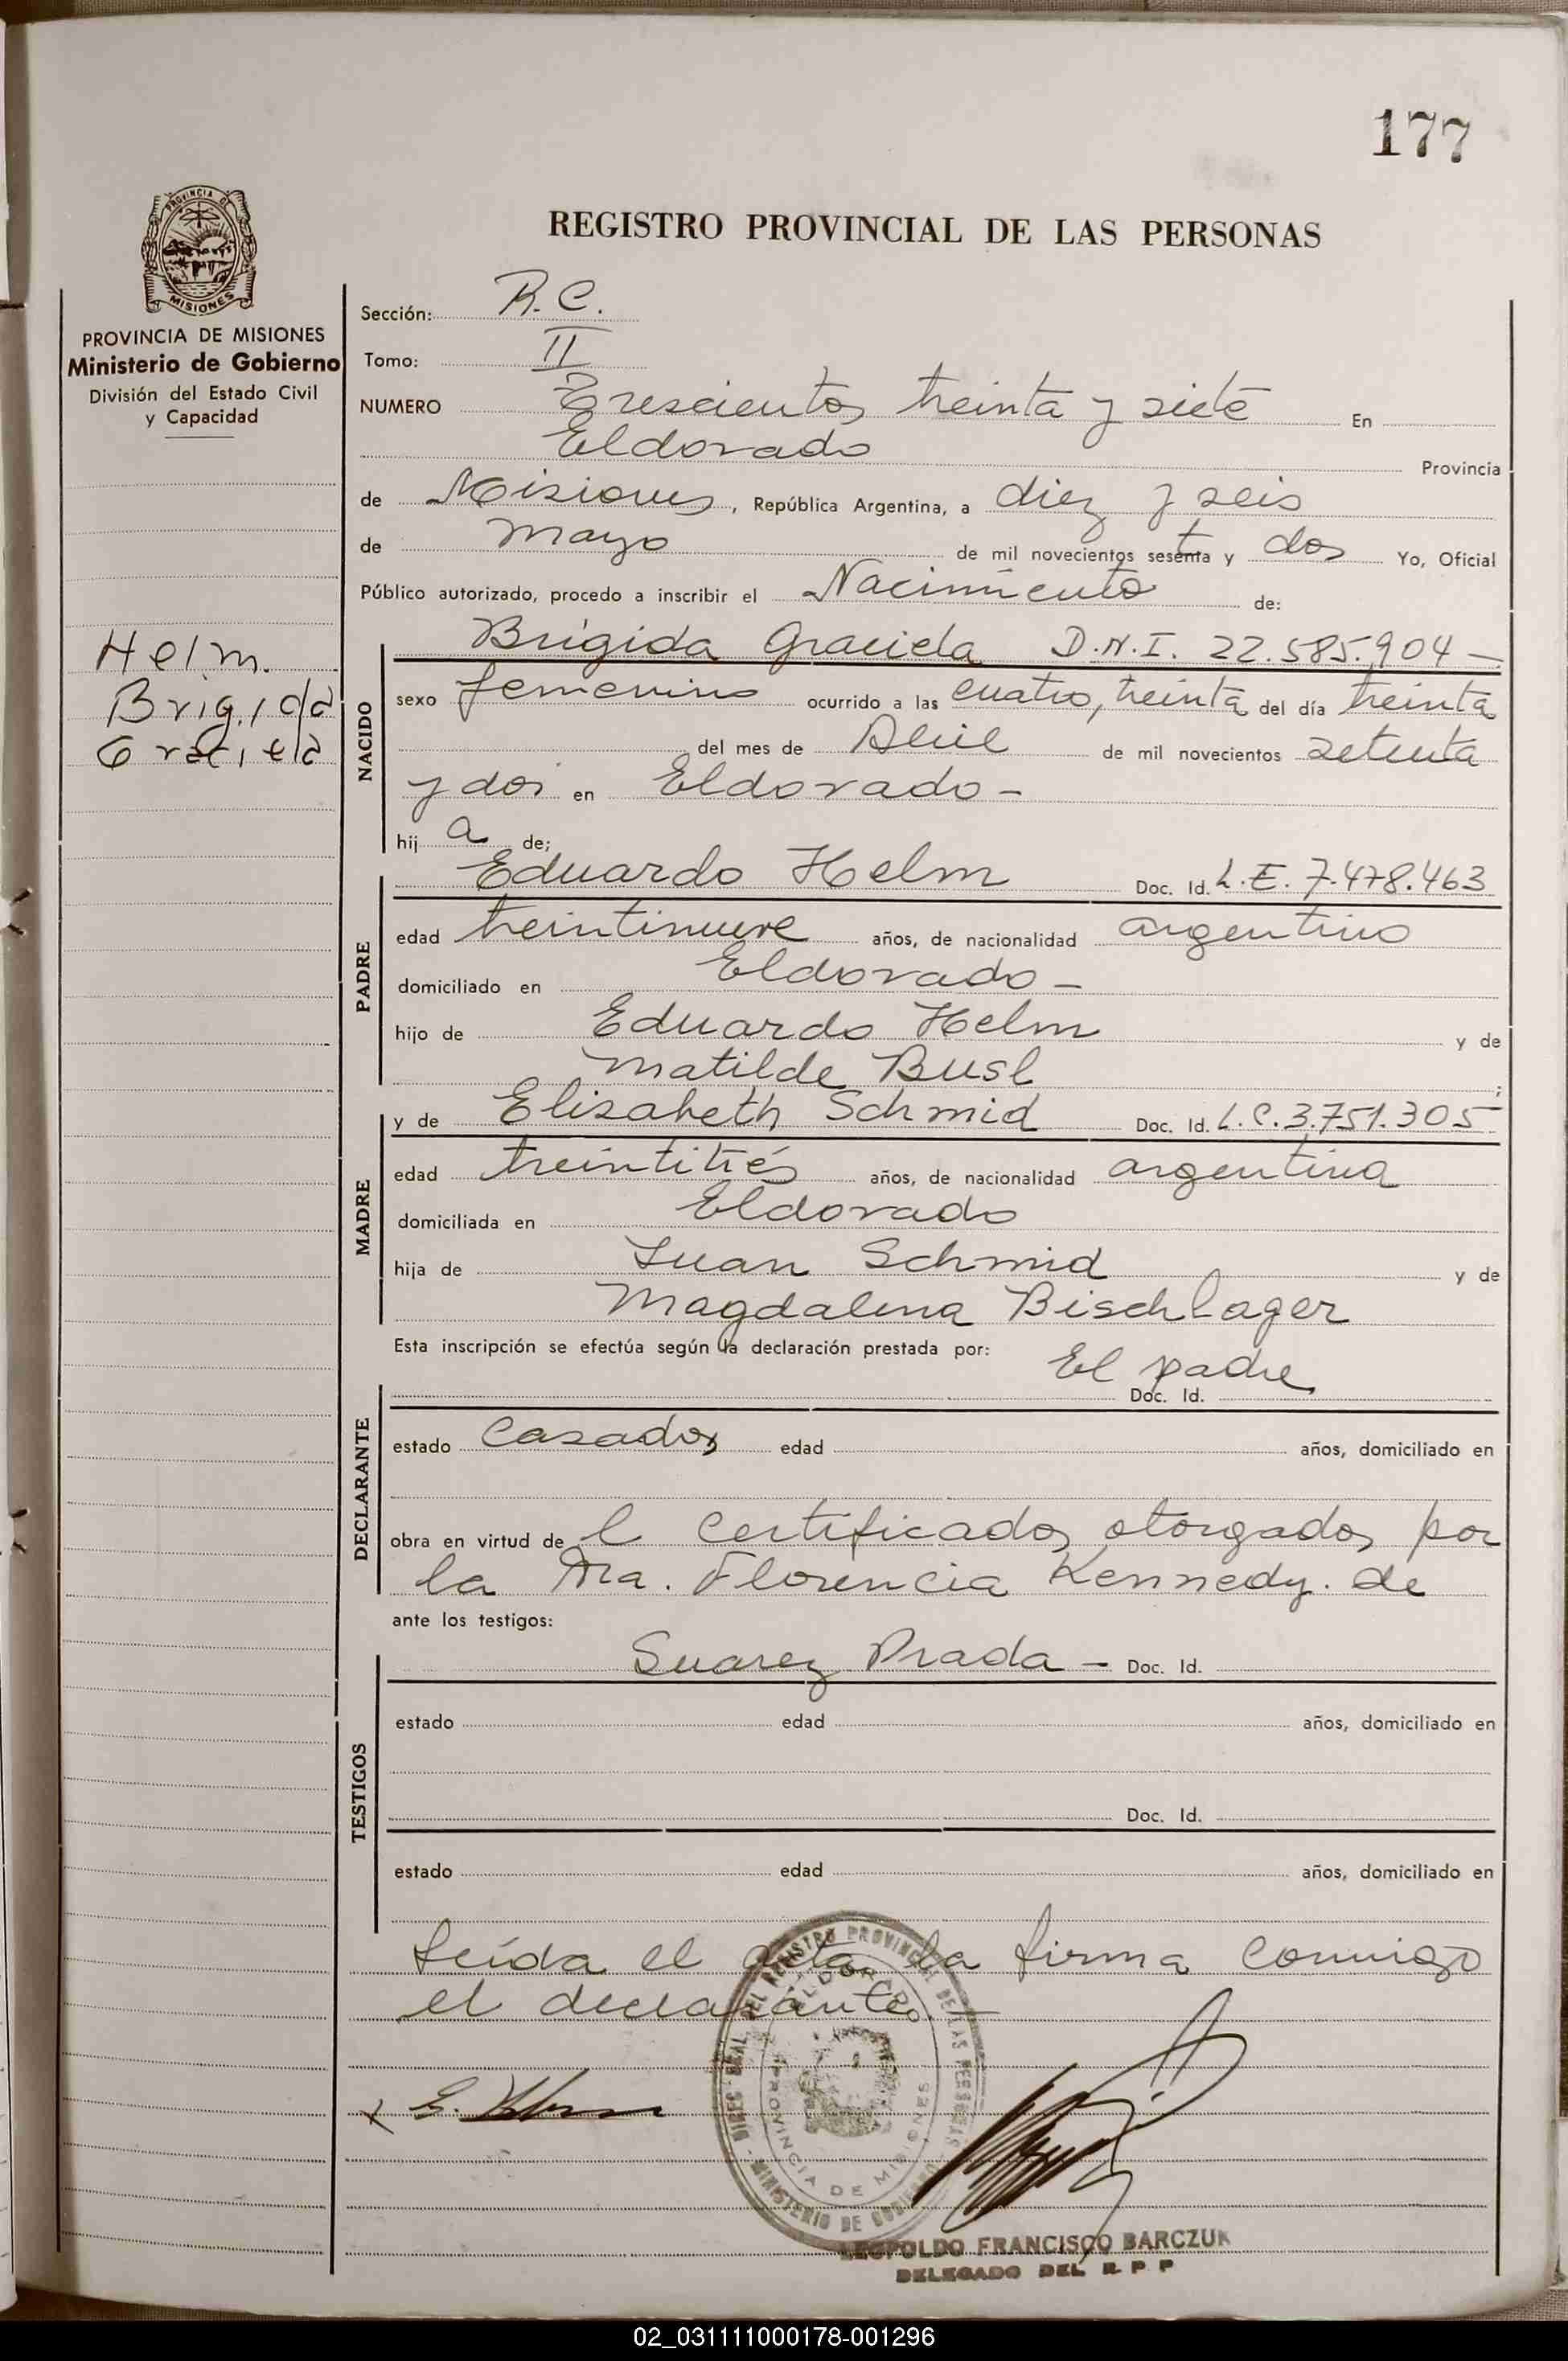 177
PROVINCIA DE
MISIONES
PROVINCIA DE MISIONES
Ministerio de Gobierno
División del Estado Civil
y Capacidad
Helm.
Brigida
Graciela
REGISTRO PROVINCIAL DE LAS PERSONAS
Sección: R.C.
Tomo: II
NUMERO Trescientos treinta y siete En
Eldorado Provincia
de Misiones, República Argentina, a diez y seis
de mayo de mil novecientos setenta y dos Yo, Oficial
Público autorizado, procedo a inscribir el Nacimiento de:
NACIDO
Brígida Graciela D.N.I. 22.585.904 —
sexo femenino ocurrido a las cuatro, treinta del día treinta
del mes de Abril de mil novecientos setenta
y dos en Eldorado -
hij a de;
PADRE
Eduardo Helm Doc. Id. L.E. 7.478.463
edad treintinueve años, de nacionalidad argentino
domiciliado en Eldorado -
hijo de Eduardo Helm y de
Matilde Busl ;
MADRE
y de Elisabeth Schmid Doc. Id. L.C. 3.751.305-
edad treintitrés años, de nacionalidad argentina
domiciliada en Eldorado
hija de Juan Schmid y de
Magdalena Bischlager
Esta inscripción se efectúa según la declaración prestada por: El padre
DECLARANTE
Doc. Id.
estado Casados edad años, domiciliado en
obra en virtud de l certificados otorgados por
la Dra. Florencia Kennedy. de
ante los testigos:
TESTIGOS
Suarez Prada - Doc. Id.
estado edad años, domiciliado en
Doc. Id.
estado edad años, domiciliado en
Leída el acta, la firma conmigo
el declarante. —
x E. Helm
DEL REGISTRO PROVINCIAL DE LAS PERSONAS
ELDORADO
PROVINCIA DE MISIONES
MINISTERIO DE GOBIERNO
LEOPOLDO FRANCISCO BARCZUK
DELEGADO DEL R. P. P
02_031111000178-001296